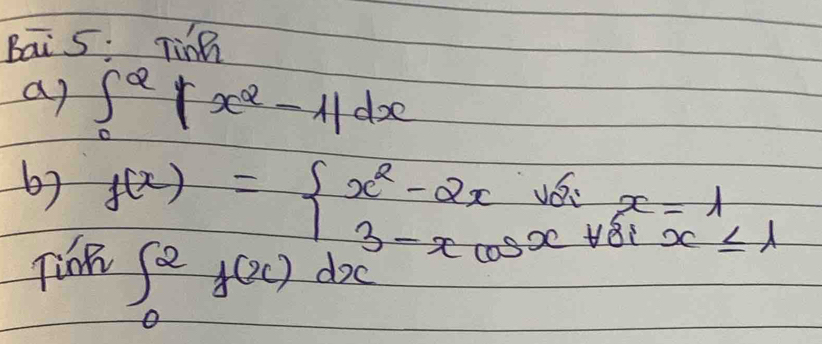 Bài 5: Tính
a) ∫₀² |x² - 1| dx
b) f(x) = { x² - 2x với x = 1
3 - x cos x với x ≤ 1
Tính ∫₀² f(x) dx